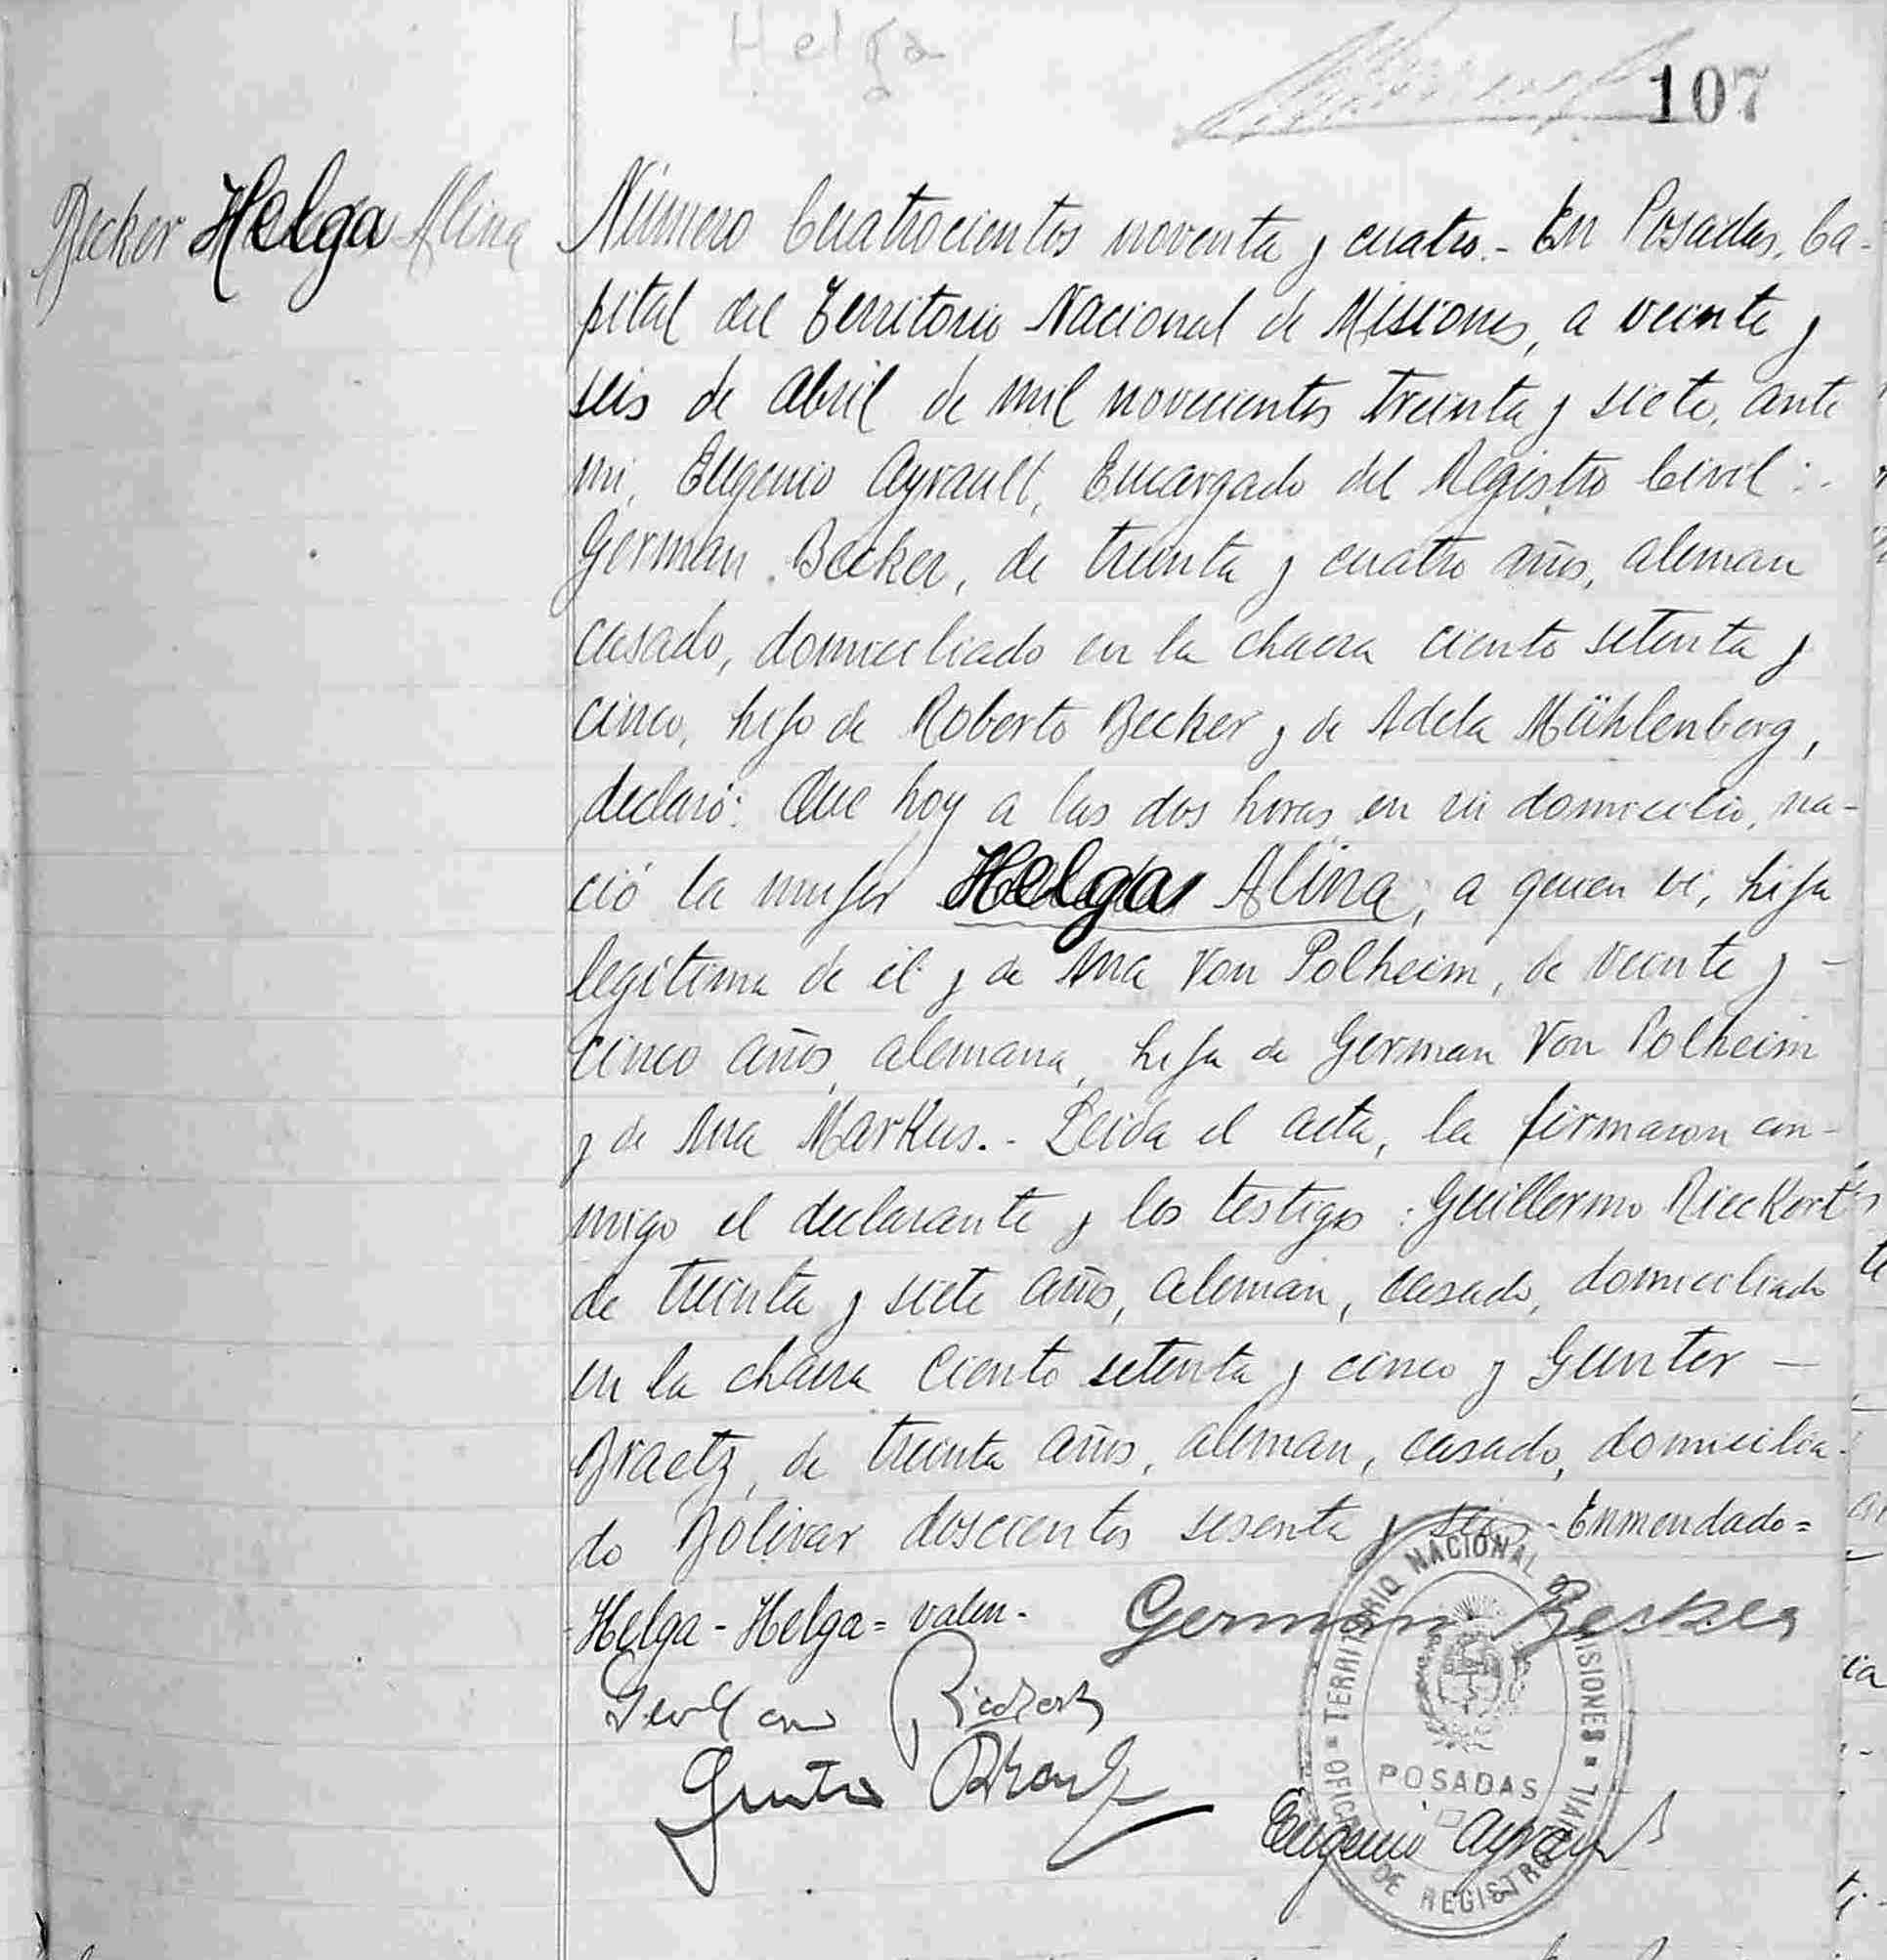 Helga
107
Becker Helga Alina
Número Cuatrocientos noventa y cuatro.- En Posadas, Ca-
pital del Territorio Nacional de Misiones, a veinte y
seis de Abril de mil novecientos treinta y siete, ante
mi, Eugenio Ayrault, Encargado del Registro Civil:.
German Becker, de treinta y cuatro años, aleman
casado, domiciliado en la chacra ciento setenta y
cinco, hijo de Roberto Becker y de Adela Mühlenberg,
declaró: Que hoy a las dos horas, en su domicilio, na-
ció la mujer Helga Alina, a quien vi, hija
legitima de él y de Ana Von Polheim, de veinte y -
cinco años, alemana, hija de German Von Polheim
y de Ana Markus.- Leida el acta, la firmaron con-
migo el declarante y los testigos: Guillermo Rieckert
de treinta y siete años, aleman, casado, domiciliado
en la chacra Ciento setenta y cinco y Gunter -
Braetz, de treinta años, aleman, casado, domicilia-
do Bolivar doscientos sesenta y seis - Enmendado=
Helga - Helga = valen.- German Becker
Gunter
Eugenio Ayrault
OFICINA DE REGISTRO CIVIL TERRITORIO NACIONAL MISIONES
POSADAS